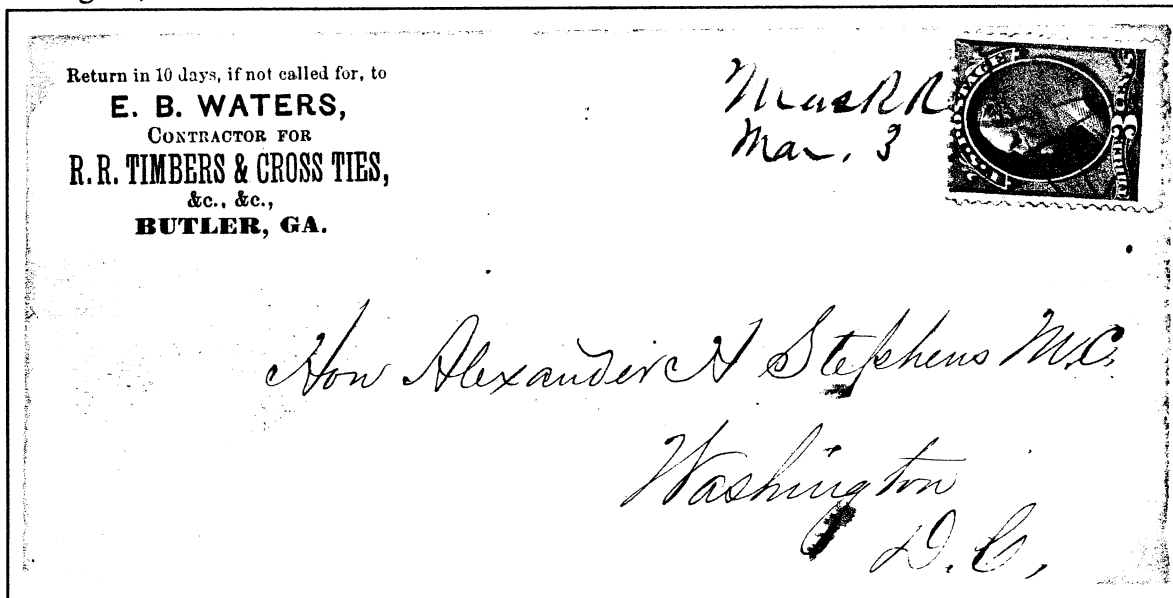 Return in 10 days, if not called for, to
E. B. WATERS,
CONTRACTOR FOR
R.R. TIMBERS & CROSS TIES,
&c., &c.,
BUTLER, GA.
Mus R R
Mar. 3
U.S. POSTAGE
3
CENTS
Hon Alexander H Stephens M.C.
Washington
D.C,